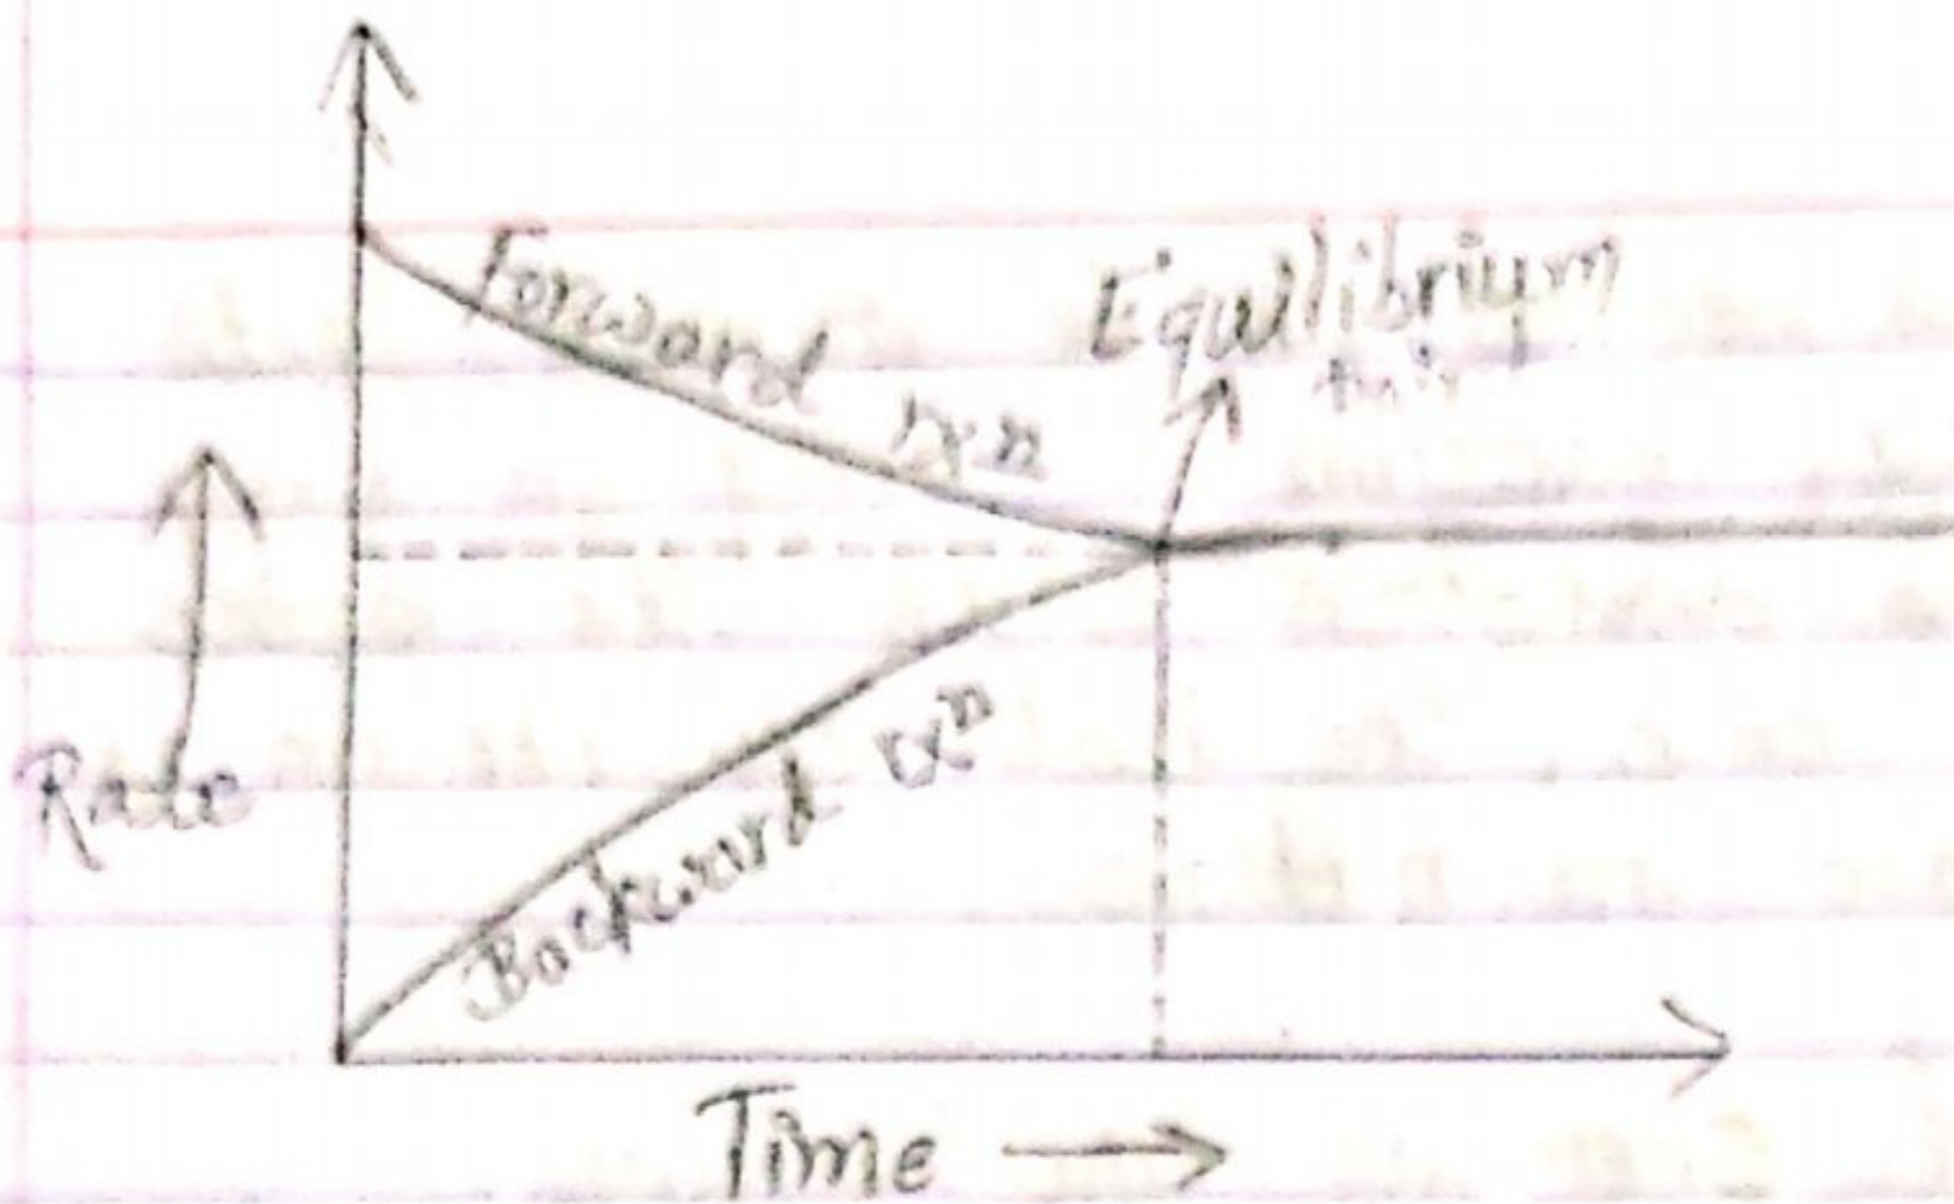 Forward rxn
Equilibrium
Rate
Backward rxn
Time